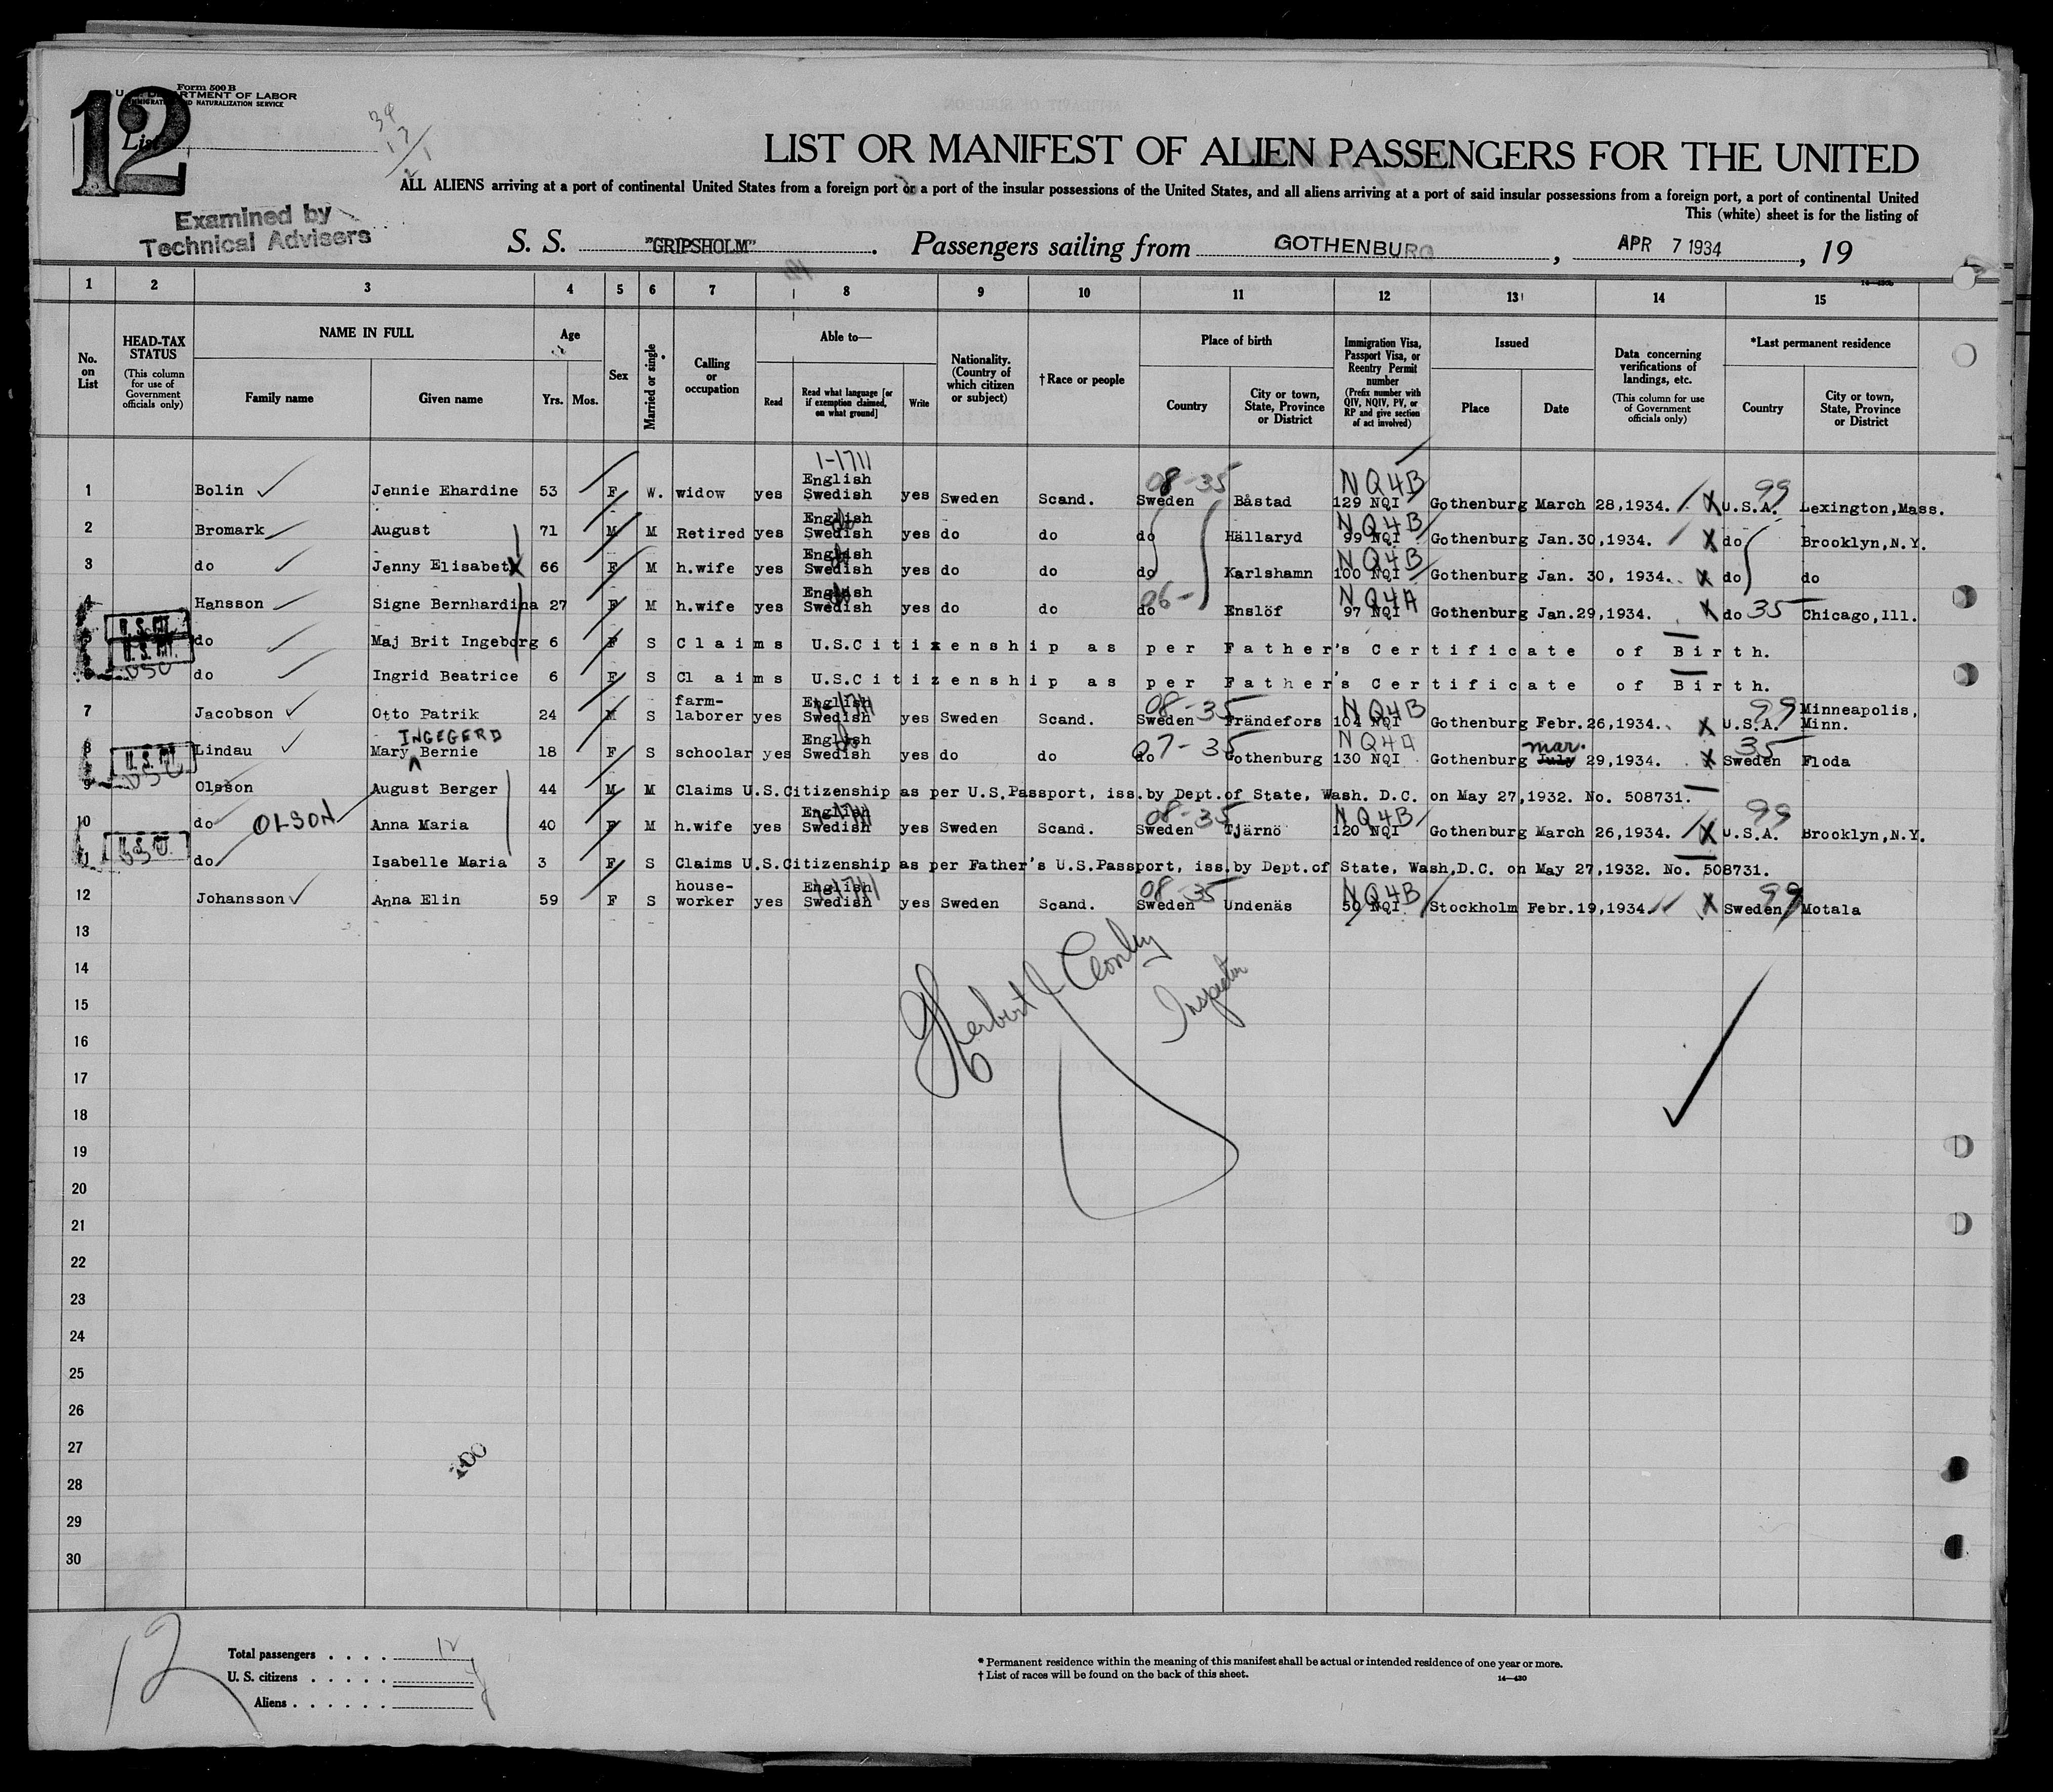 12
Form 500 B
U. S. DEPARTMENT OF LABOR
IMMIGRATION AND NATURALIZATION SERVICE
List
LIST OR MANIFEST OF ALIEN PASSENGERS FOR THE UNITED
ALL ALIENS arriving at a port of continental United States from a foreign port or a port of the insular possessions of the United States, and all aliens arriving at a port of said insular possessions from a foreign port, a port of continental United
This (white) sheet is for the listing of
Examined by
Technical Advisers
S. S. "GRIPSHOLM". Passengers sailing from GOTHENBURG, APR 7 1934, 19
1 2 3 4 5 6 7 8 9 10 11 12 13 14 15
No. on List
HEAD-TAX STATUS (This column for use of Government officials only)
NAME IN FULL
Family name
Given name
Age
Yrs. Mos.
Sex
Married or single
Calling or occupation
Able to—
Read
Read what language [or if exemption claimed, on what ground]
Write
Nationality. (Country of which citizen or subject)
† Race or people
Place of birth
Country
City or town, State, Province or District
Immigration Visa, Passport Visa, or Reentry Permit number (Prefix number with QIV, NQIV, PV, or RP and give section of act involved)
Issued
Place
Date
Data concerning verifications of landings, etc. (This column for use of Government officials only)
*Last permanent residence
Country
City or town, State, Province or District
1-1711 08-35 NQ4B 99
1 Bolin Jennie Ehardine 53 F W. widow yes English Swedish yes Sweden Scand. Sweden Båstad 129 NQI Gothenburg March 28,1934. X U.S.A. Lexington,Mass.
NQ4B
2 Bromark August 71 M M Retired yes English Swedish yes do do do Hällaryd 99 NQI Gothenburg Jan.30,1934. X do Brooklyn,N.Y.
NQ4B
3 do Jenny Elisabet 66 F M h.wife yes English Swedish yes do do do Karlshamn 100 NQI Gothenburg Jan. 30, 1934. X do do
06- NQ4A
4 Hansson Signe Bernhardina 27 F M h.wife yes English Swedish yes do do do Enslöf 97 NQI Gothenburg Jan.29,1934. X do 35 Chicago,Ill.
5 do Maj Brit Ingeborg 6 F S Claims U.S.Citizenship as per Father's Certificate of Birth.
6 do Ingrid Beatrice 6 F S Claims U.S.Citizenship as per Father's Certificate of Birth.
08-35 NQ4B 99
7 Jacobson Otto Patrik 24 M S farm-laborer yes English Swedish yes Sweden Scand. Sweden Frändefors 104 NQI Gothenburg Febr.26,1934. X U.S.A. Minneapolis, Minn.
INGEGERD 07-35 NQ4A mar. 35
8 Lindau Mary Bernie 18 F S schoolar yes English Swedish yes do do do Gothenburg 130 NQI Gothenburg July 29,1934. X Sweden Floda
9 Olsson August Berger 44 M M Claims U.S.Citizenship as per U.S.Passport, iss.by Dept.of State, Wash. D.C. on May 27,1932. No. 508731.
OLSON 08-35 NQ4B 99
10 do Anna Maria 40 F M h.wife yes English Swedish yes Sweden Scand. Sweden Tjärnö 120 NQI Gothenburg March 26,1934. X U.S.A. Brooklyn,N.Y.
11 do Isabelle Maria 3 F S Claims U.S.Citizenship as per Father's U.S.Passport, iss.by Dept.of State, Wash.D.C. on May 27,1932. No. 508731.
08-35 NQ4B 99
12 Johansson Anna Elin 59 F S house-worker yes English Swedish yes Sweden Scand. Sweden Undenäs 50 NQI Stockholm Febr.19,1934. X Sweden Motala
13
14
15
16
17
18
19
20
21
22
23
24
25
26
27
28
29
30
Herbert J
Inspector
12
Total passengers . . . . 12
U. S. citizens . . . . .
Aliens . . . . . .
* Permanent residence within the meaning of this manifest shall be actual or intended residence of one year or more.
† List of races will be found on the back of this sheet.
14—430